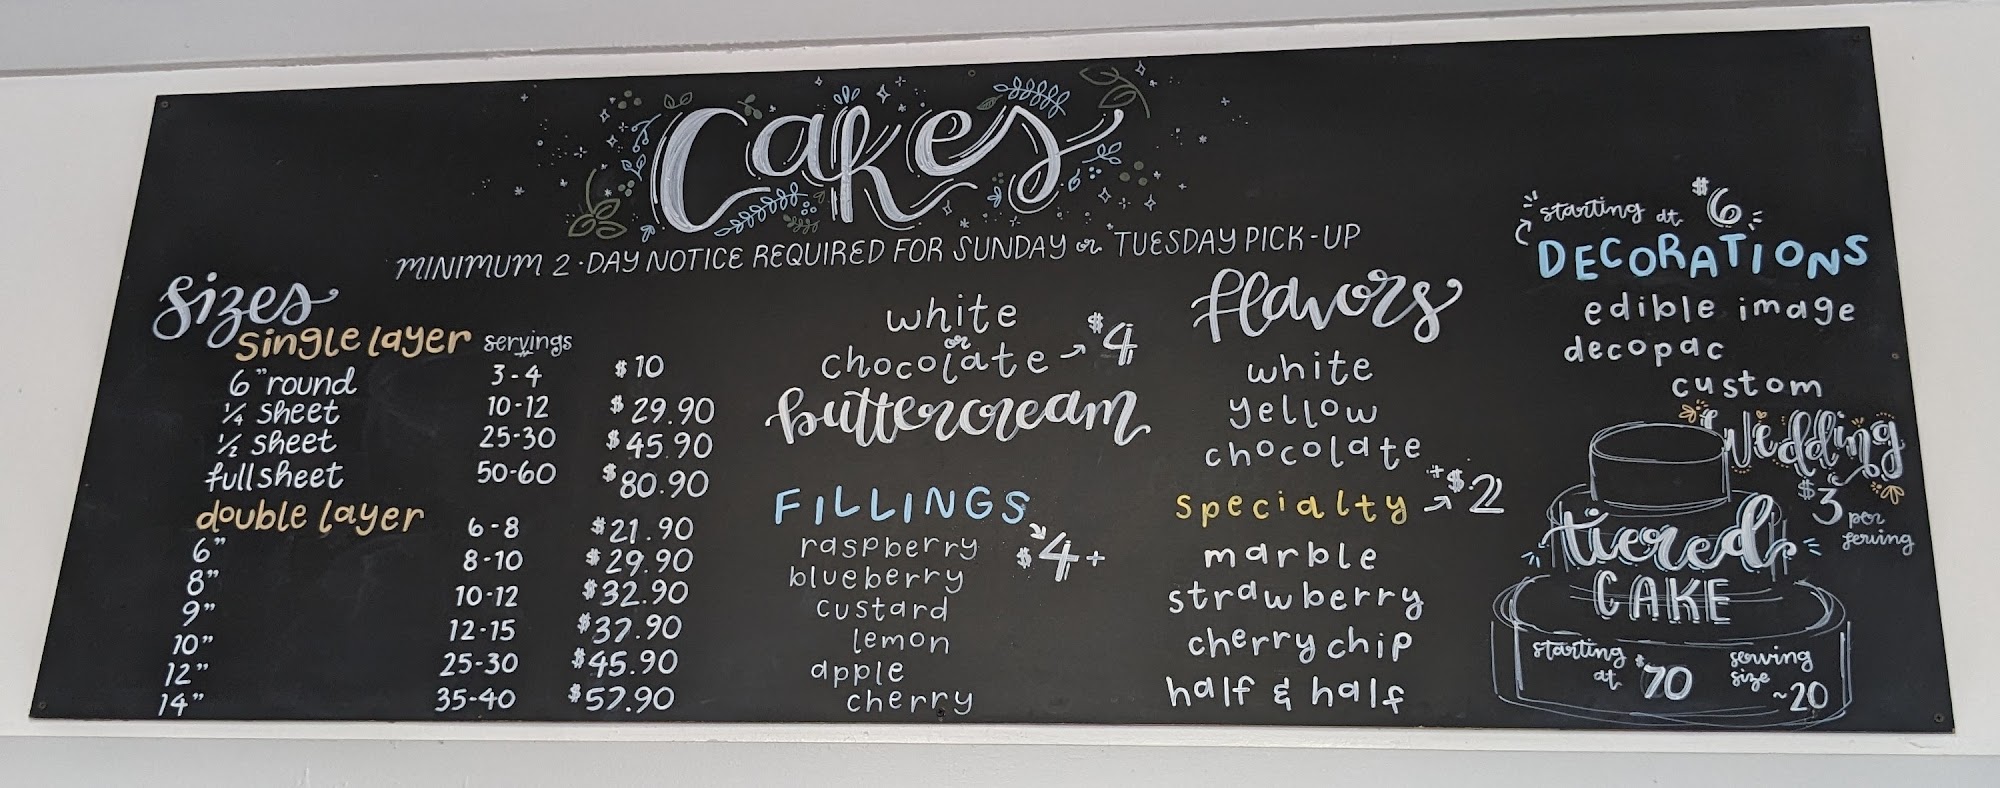 Cakes
MINIMUM 2-DAY NOTICE REQUIRED FOR SUNDAY or TUESDAY PICK-UP
Sizes
single layer servings
6" round 3-4 $10
1/4 sheet 10-12 $29.90
1/2 sheet 25-30 $45.90
full sheet 50-60 $80.90
double layer
6" 6-8 $21.90
8" 8-10 $29.90
9" 10-12 $32.90
10" 12-15 $37.90
12" 25-30 $45.90
14" 35-40 $57.90
white
or
chocolate → $4
buttercream
FILLINGS
$4+
raspberry
blueberry
custard
lemon
apple
cherry
flavors
white
yellow
chocolate
specialty → +$2
marble
strawberry
cherry chip
half & half
starting at $6
DECORATIONS
edible image
decopac
custom
Wedding
$3 per serving
tiered
CAKE
starting at $70
serving size ~20